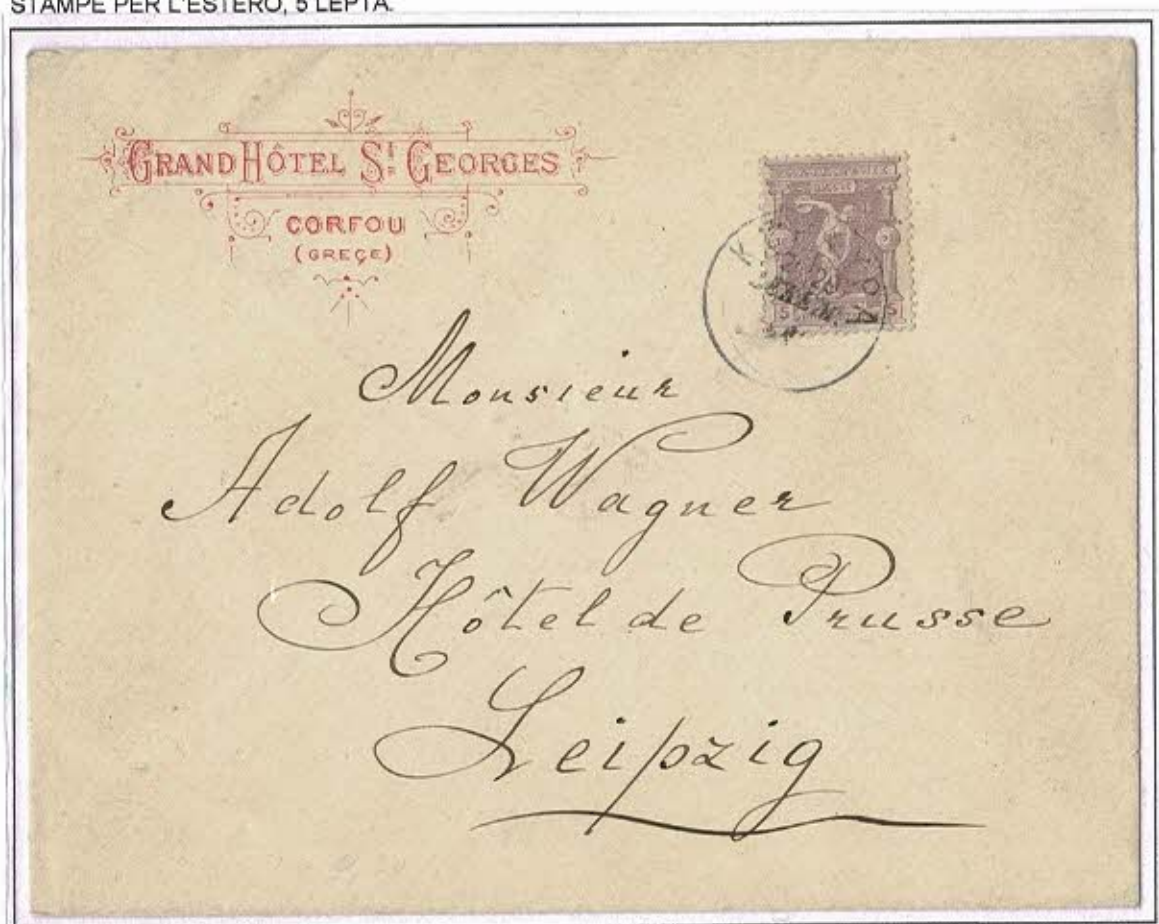 STAMPE PER L'ESTERO, 5 LEPTA.
GRAND HÔTEL St GEORGES
CORFOU
(GREÇE)
Monsieur
Adolf Wagner
Hôtel de Prusse
Leipzig